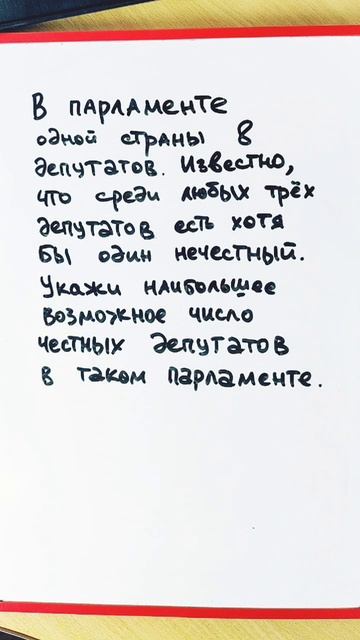 В ПАРЛАМЕНТЕ
одной страны 8
депутатов. Известно,
что среди любых трёх
депутатов есть хотя
бы один нечестный.
Укажи наибольшее
возможное число
честных депутатов
в таком парламенте.